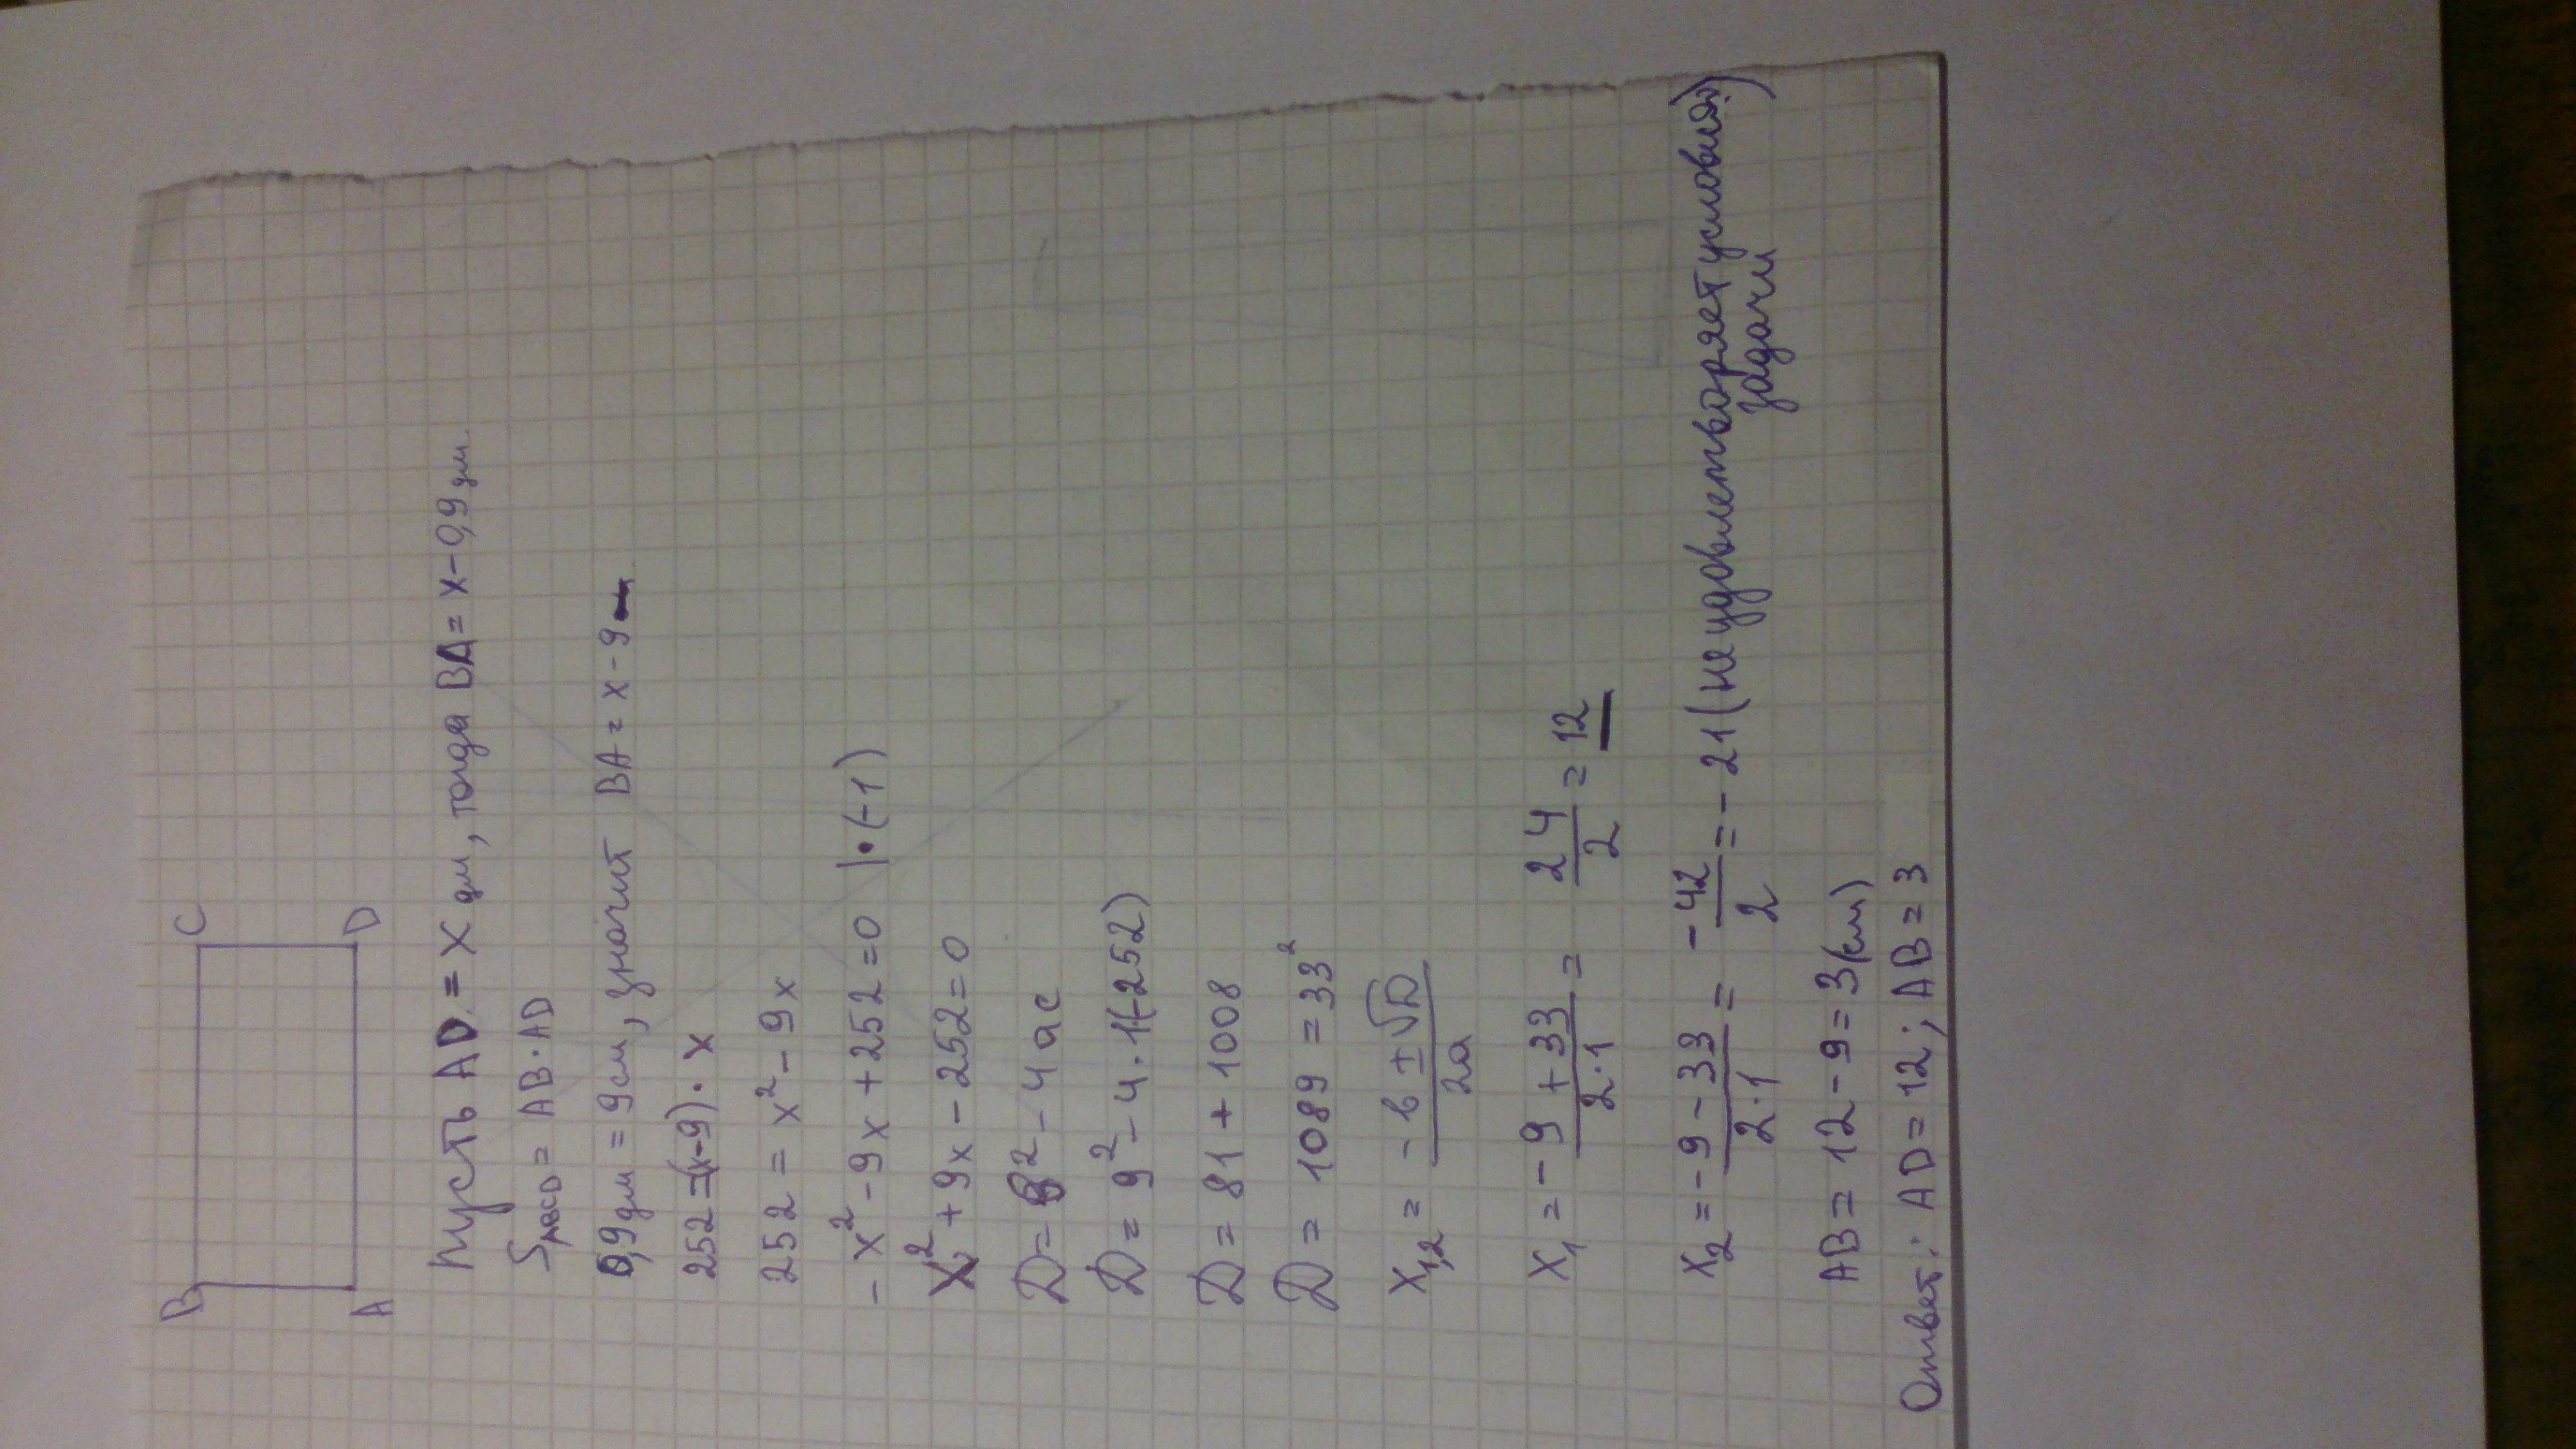 B C
A D
Пусть AD = x дм, тогда BA = x - 0,9 дм.
S_ABCD = AB · AD
0,9 дм = 9 см, значит BA = x - 9
252 = (x-9) · x
252 = x² - 9x
- x² - 9x + 252 = 0 | · (-1)
x² + 9x - 252 = 0
D = B² - 4ac
D = 9² - 4 · 1(-252)
D = 81 + 1008
D = 1089 = 33²
x₁,₂ = (-b ± √D) / 2a
x₁ = (-9 + 33) / (2 · 1) = 24/2 = 12
x₂ = (-9 - 33) / (2 · 1) = -42/2 = -21 (не удовлетворяет условия)
задачи
AB = 12 - 9 = 3 (см)
Ответ: AD = 12; AB = 3